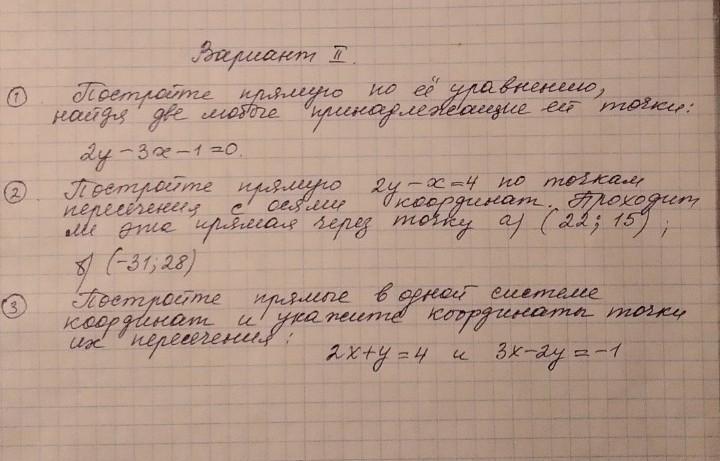 Вариант II.
① Постройте прямую по её уравнению,
найдя две любые принадлежащие ей точки:
2y-3x-1=0.
② Постройте прямую 2y-x=4 по точкам
пересечения с осями координат. Проходит
ли эта прямая через точку а) (22; 15);
б) (-31; 28)
③ Постройте прямые в одной системе
координат и укажите координаты точки
их пересечения:
2x+y=4 и 3x-2y=-1